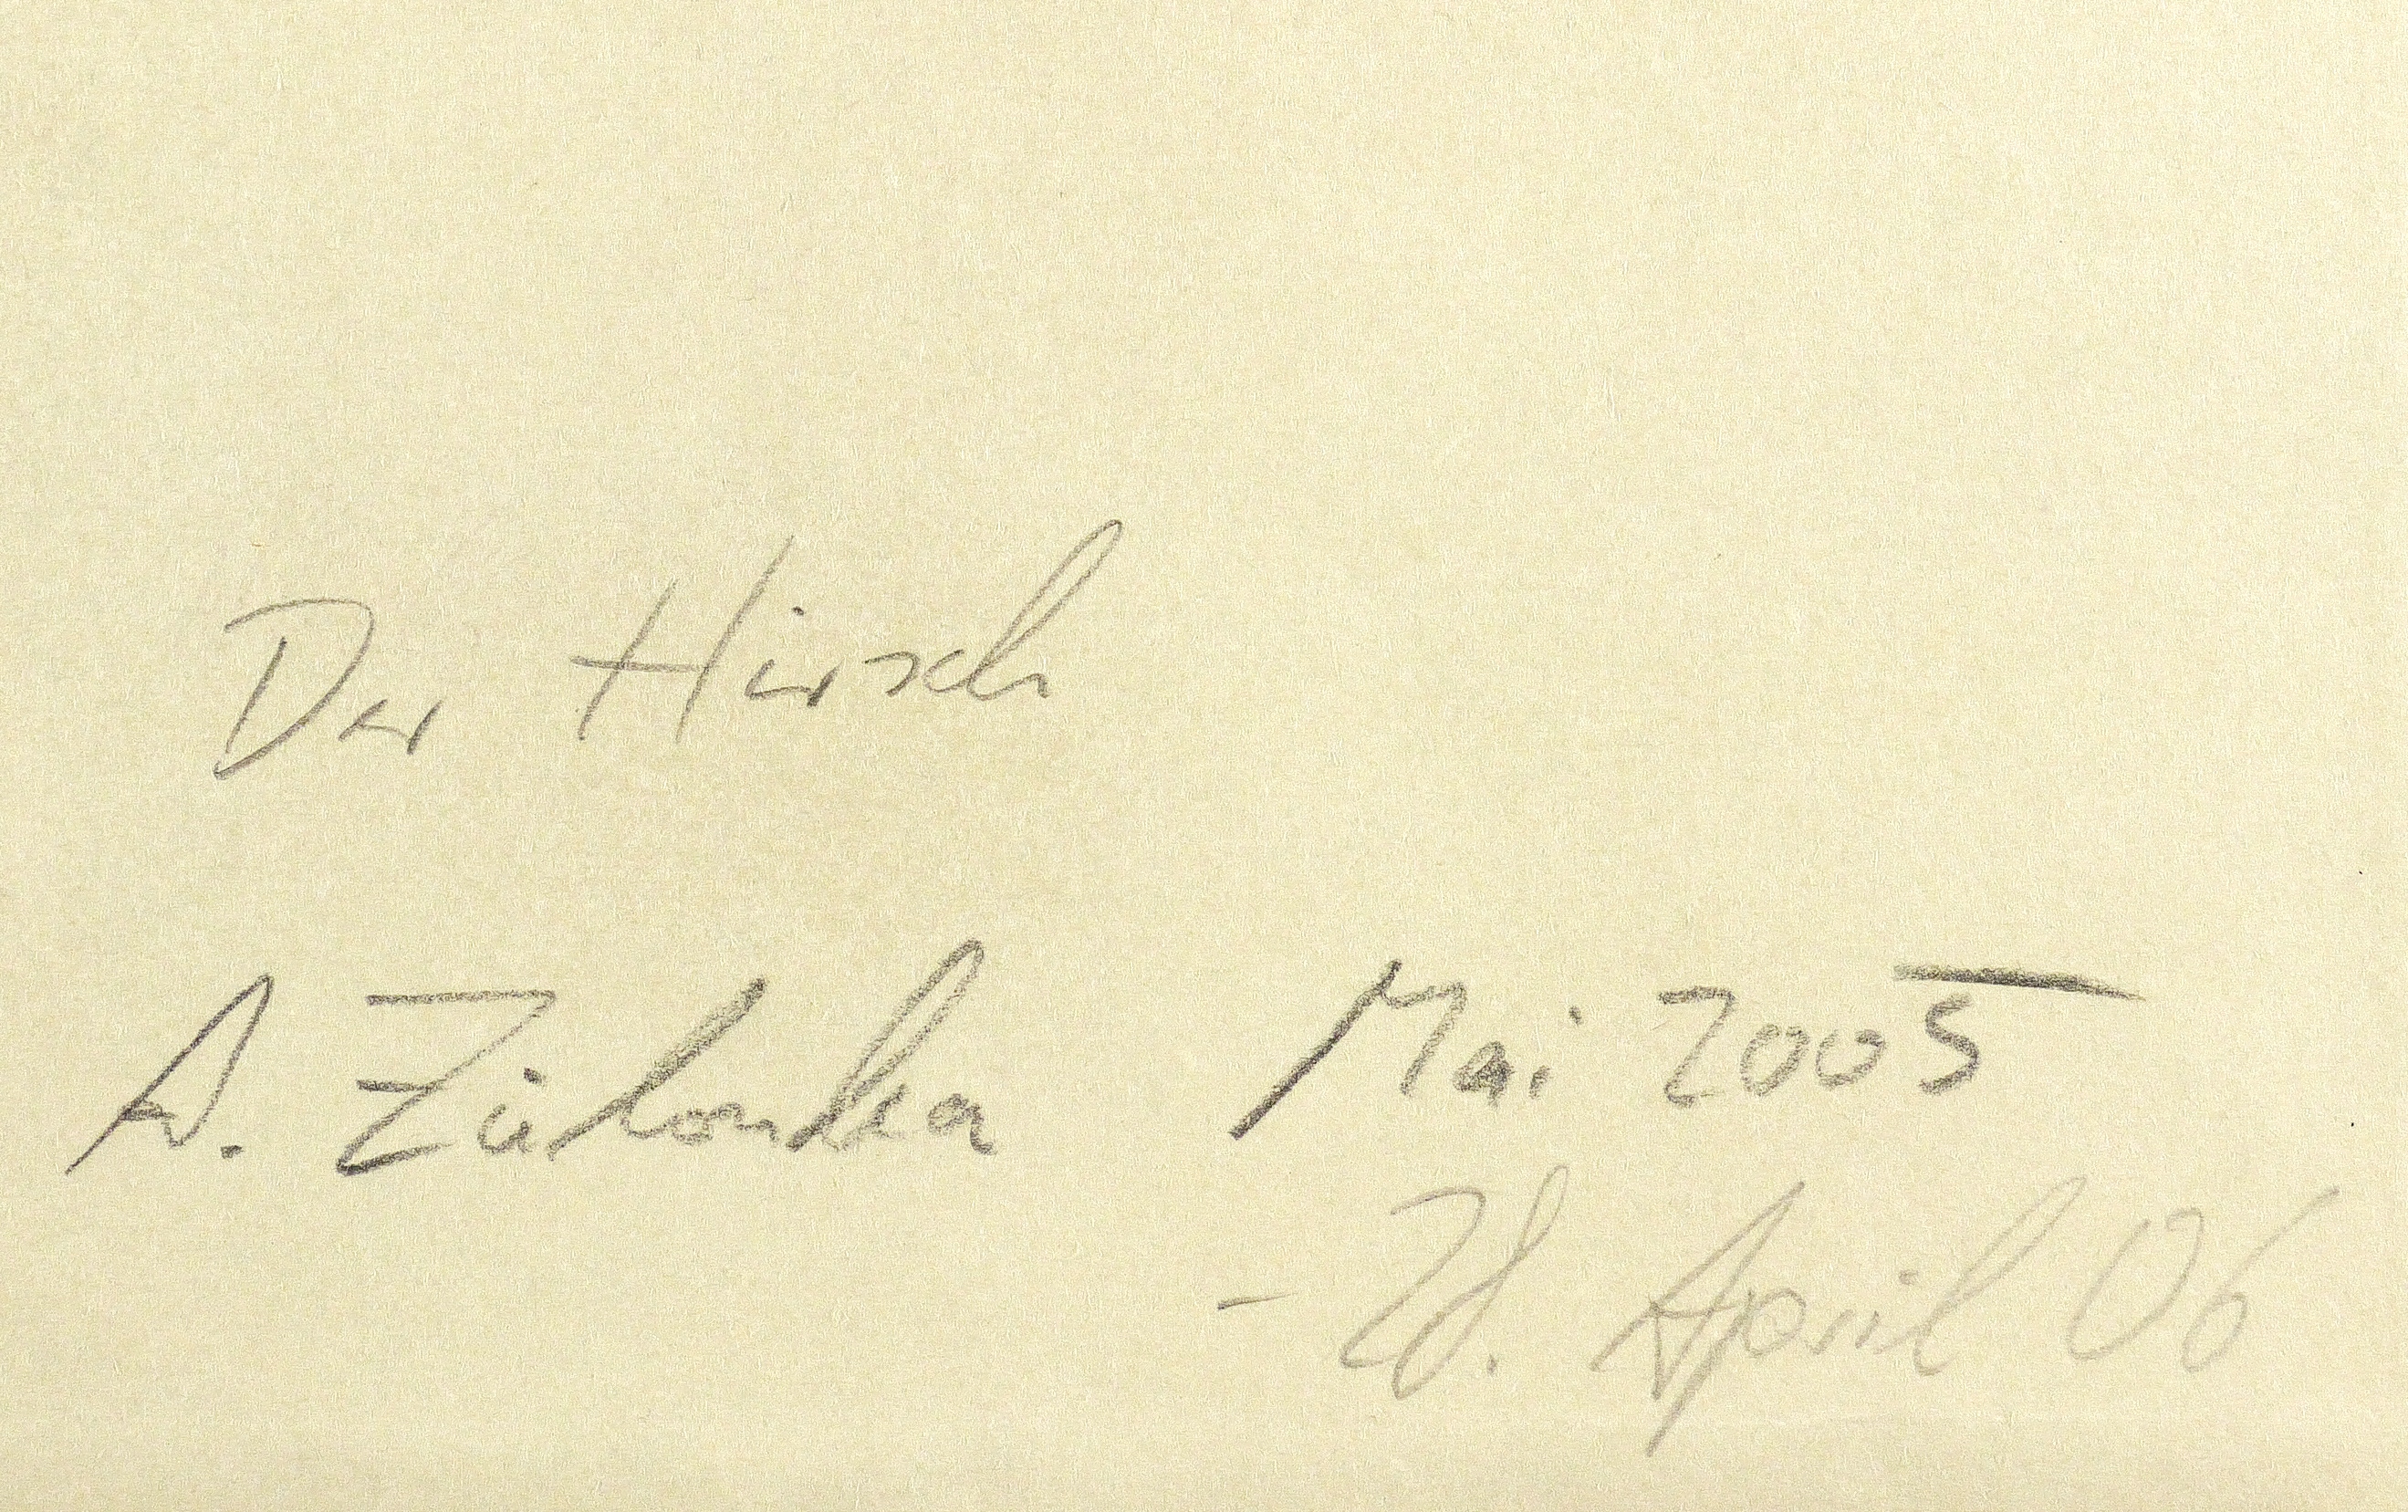 Der Hirsch
A. Zichonka Mai 2005
- 28. April 06